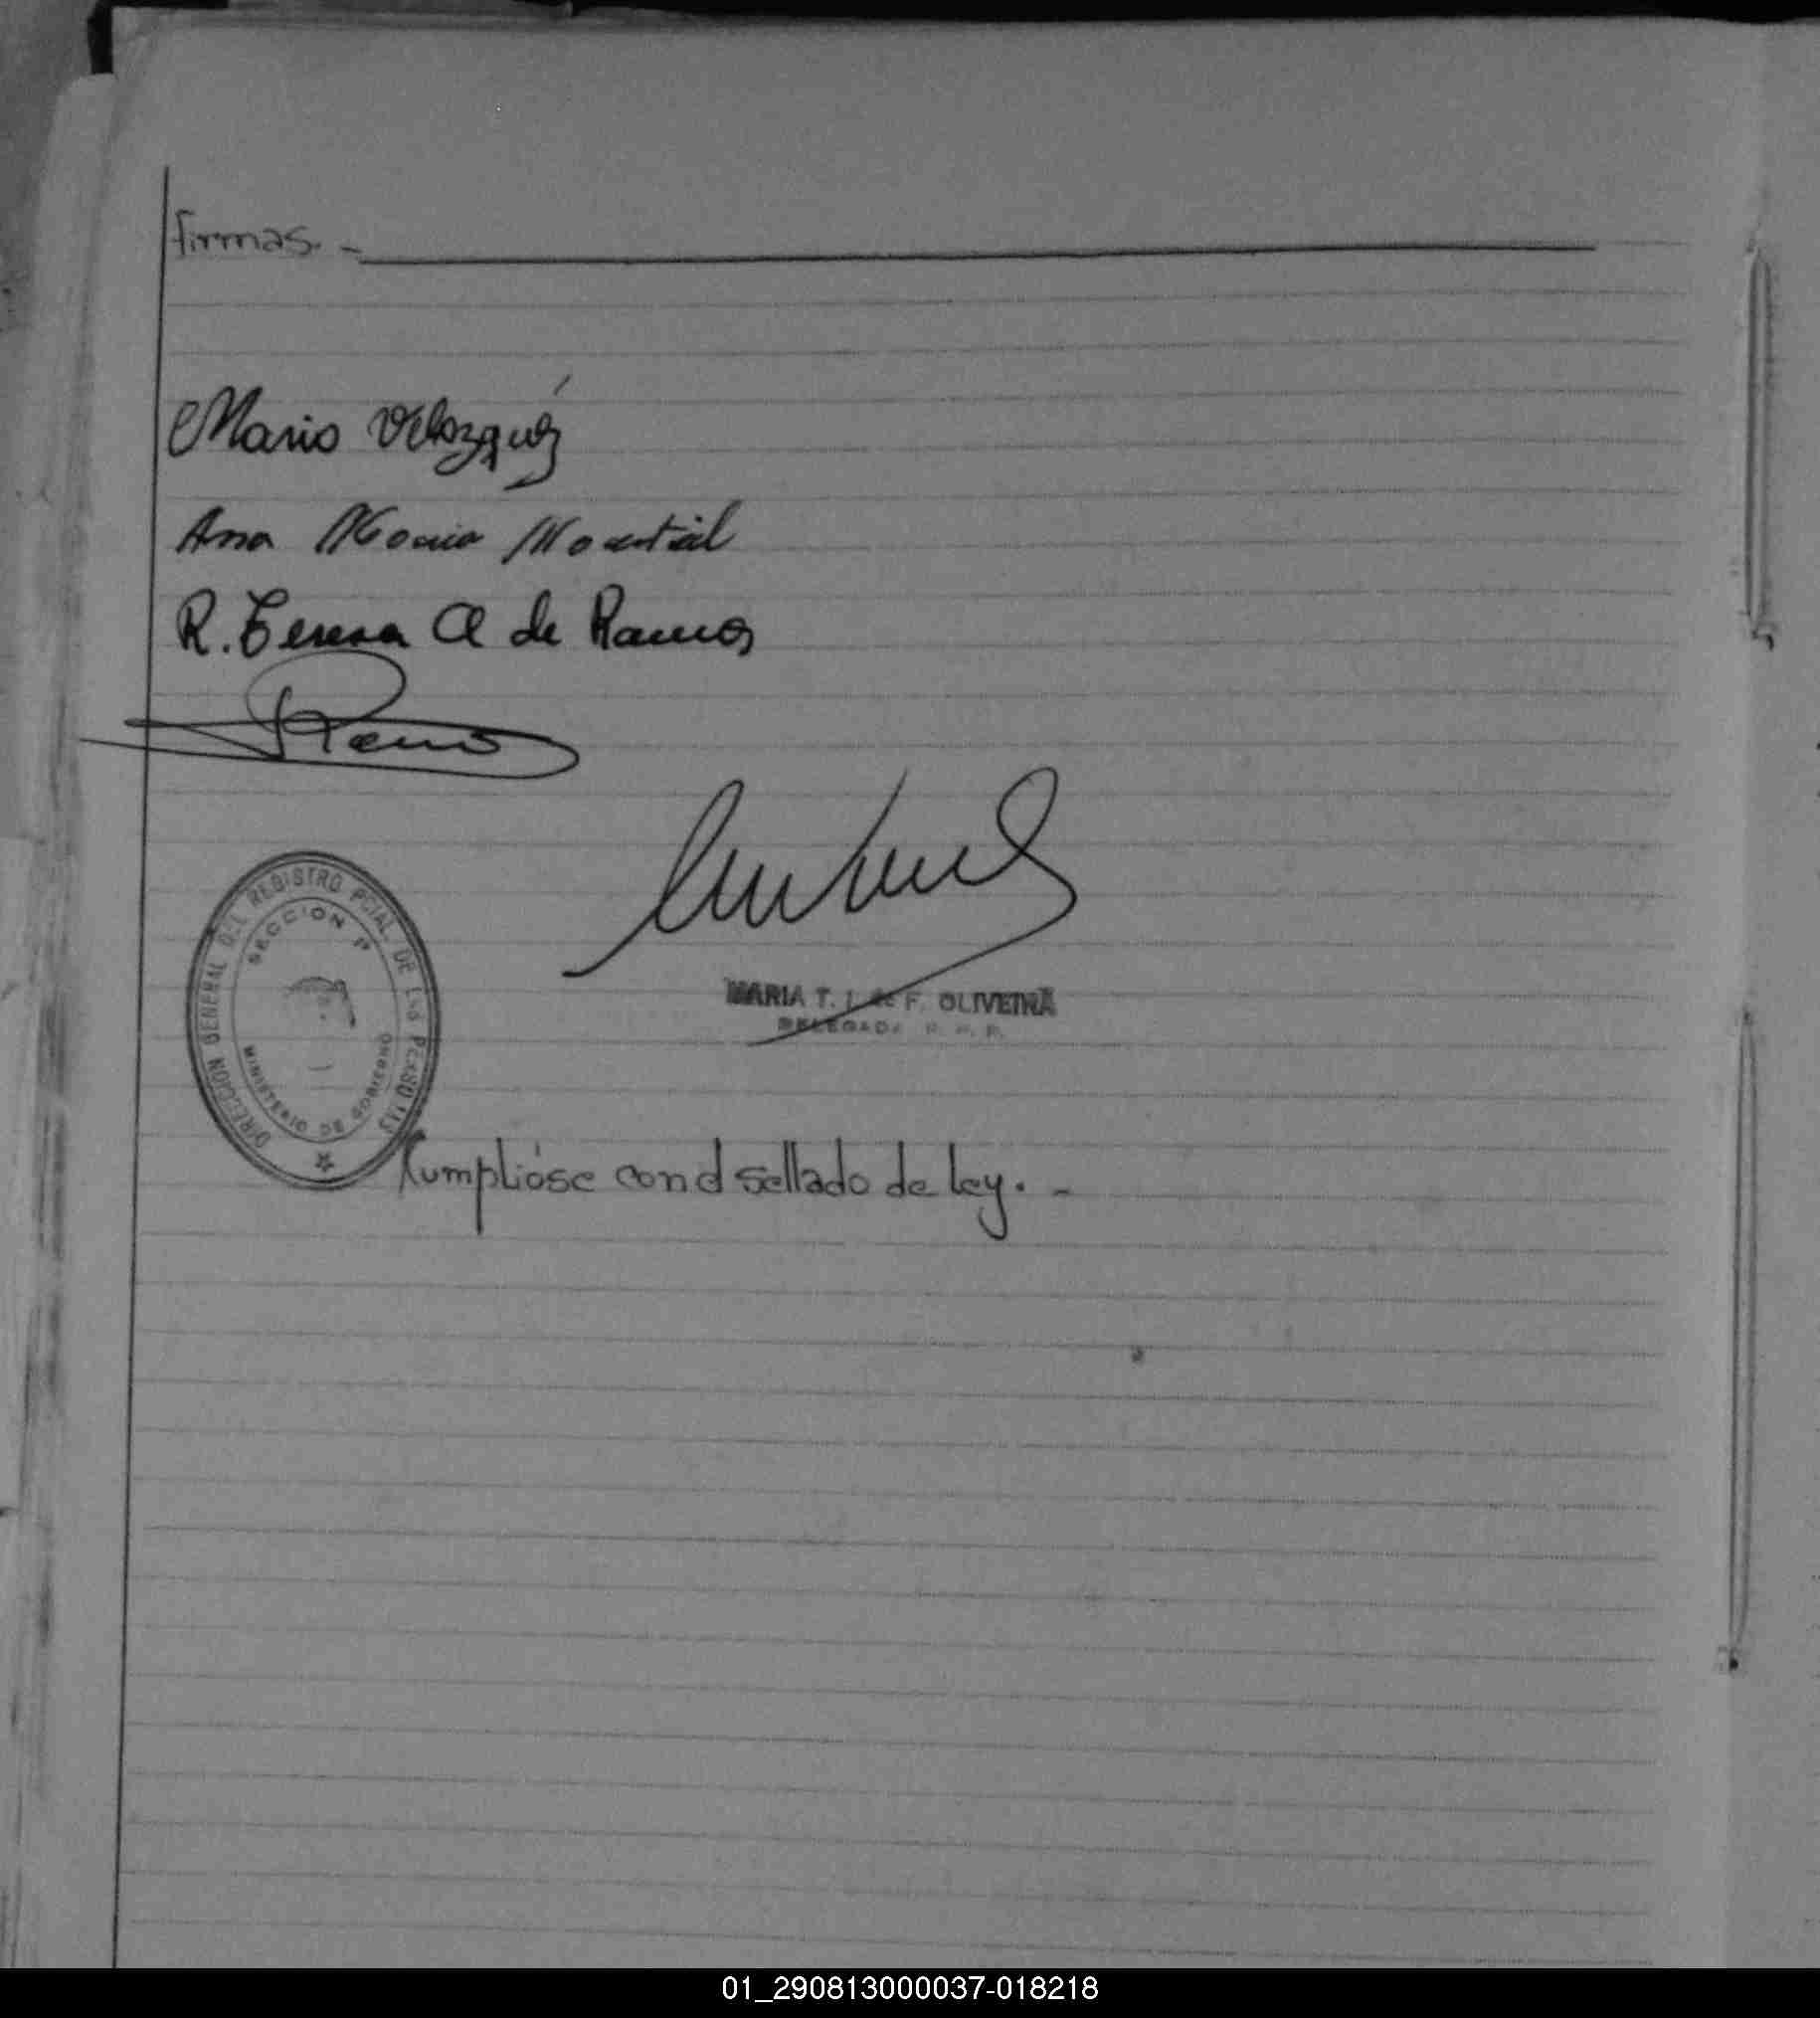 firmas. -
Mario Velázquez
Ana Maria Montiel
R. Teresa A de Ramos
Ramos
DIRECCION GENERAL DEL REGISTRO PCIAL. DE LAS PERSONAS
SECCION
MINISTERIO DE GOBIERNO
MARIA T. I. de F. OLIVEIRA
DELEGADA R. P. P.
Cumplióse con el sellado de ley. -
01_290813000037-018218